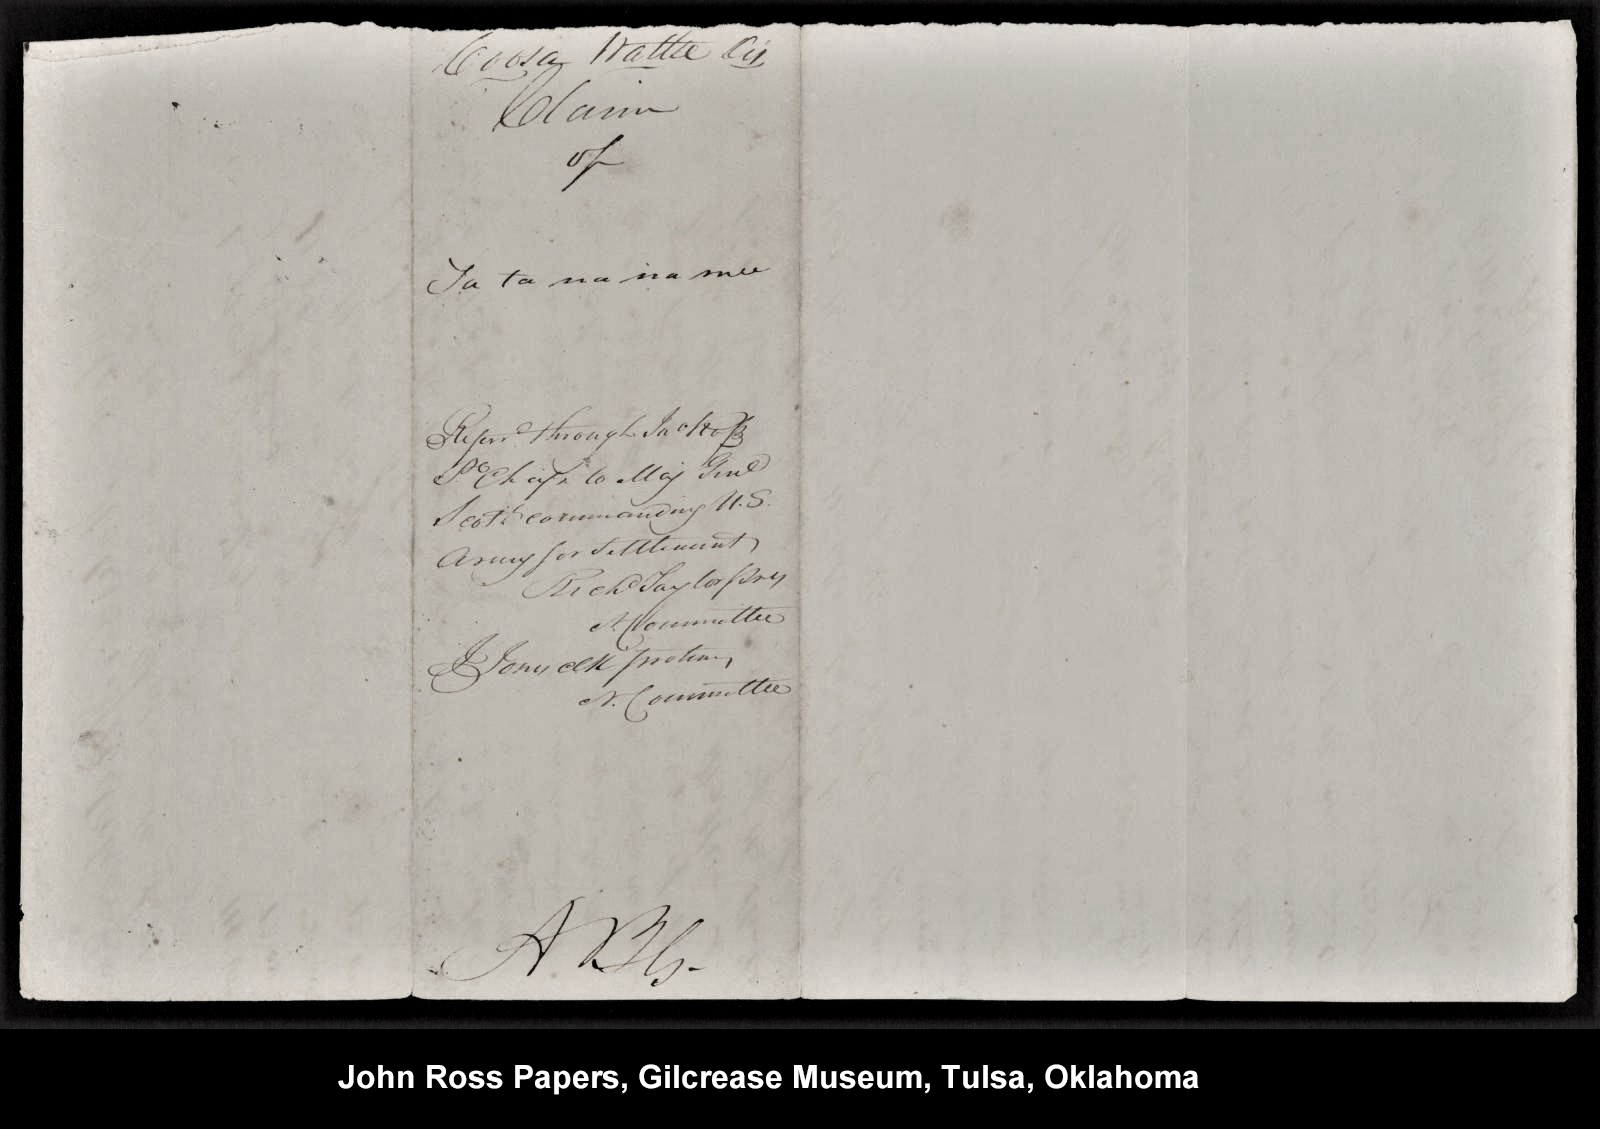 Coosa Wattee Dis
Claim
of
Ta ta na na mee
Referrd through Jno Ross
P. Chief to Maj Genl
Scott commanding U.S.
Army for Settlement
Richd Taylor Prs
N Committee
J Jones clk protem
N. Committee
John Ross Papers, Gilcrease Museum, Tulsa, Oklahoma